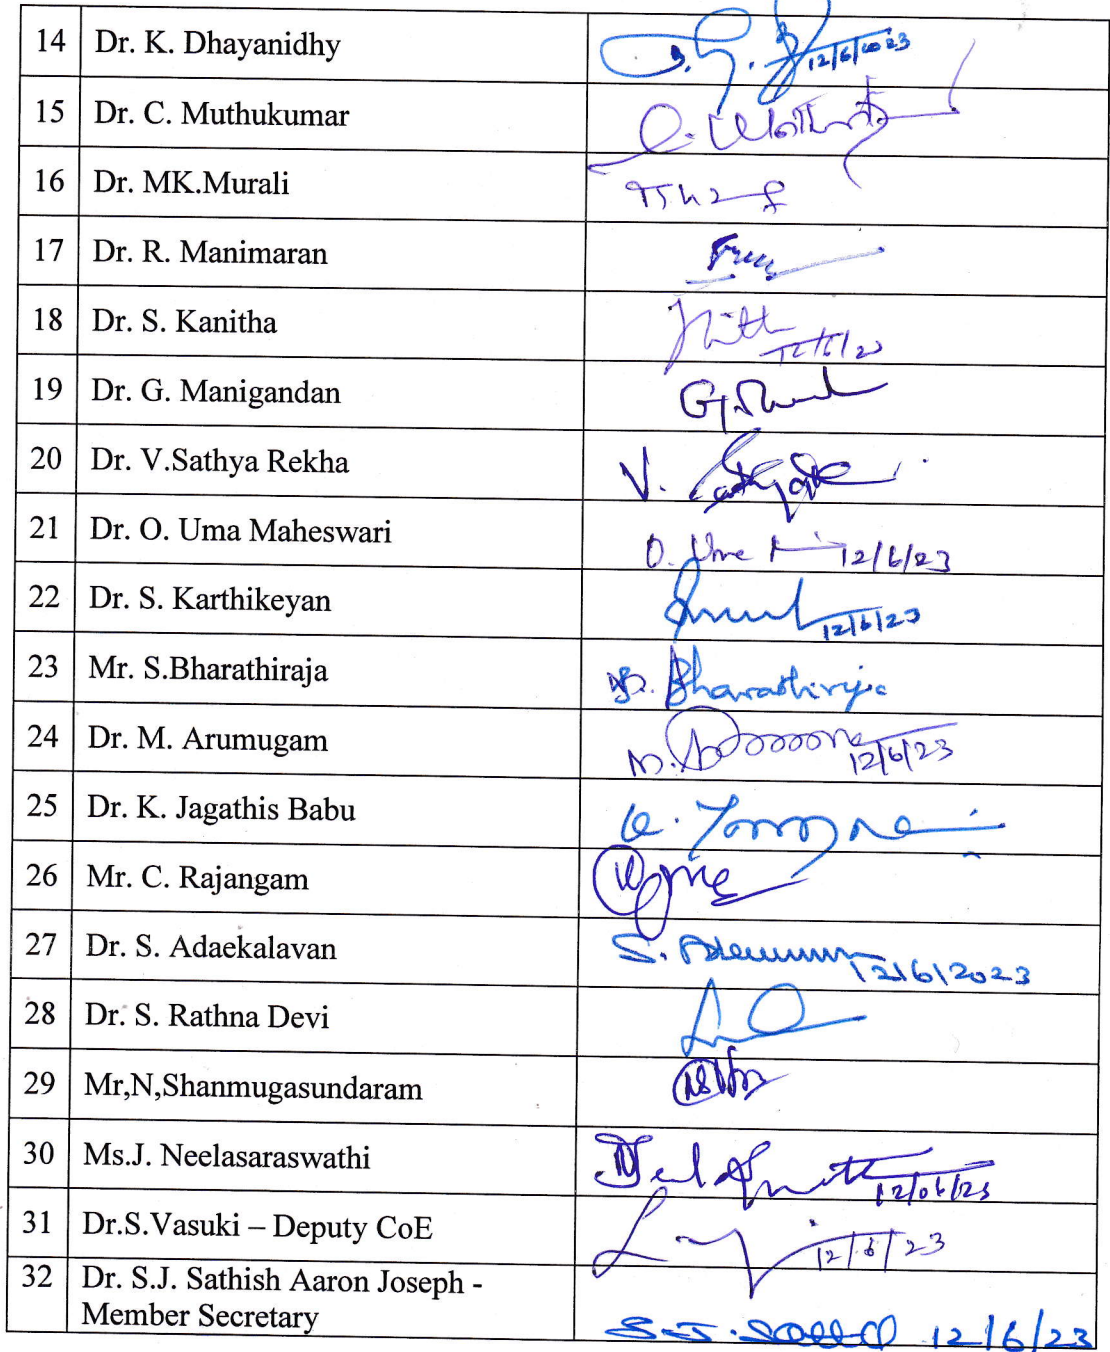 14 Dr. K. Dhayanidhy 12/6/2023
15 Dr. C. Muthukumar
16 Dr. MK.Murali
17 Dr. R. Manimaran
18 Dr. S. Kanitha
19 Dr. G. Manigandan
20 Dr. V.Sathya Rekha V.
21 Dr. O. Uma Maheswari O. Uma 12/6/23
22 Dr. S. Karthikeyan 12/6/23
23 Mr. S.Bharathiraja S. Bharathiraja
24 Dr. M. Arumugam 12/6/23
25 Dr. K. Jagathis Babu
26 Mr. C. Rajangam
27 Dr. S. Adaekalavan S. 12/6/2023
28 Dr. S. Rathna Devi
29 Mr,N,Shanmugasundaram
30 Ms.J. Neelasaraswathi 12/06/23
31 Dr.S.Vasuki – Deputy CoE 12/6/23
32 Dr. S.J. Sathish Aaron Joseph - 
Member Secretary S.J. 12/6/23